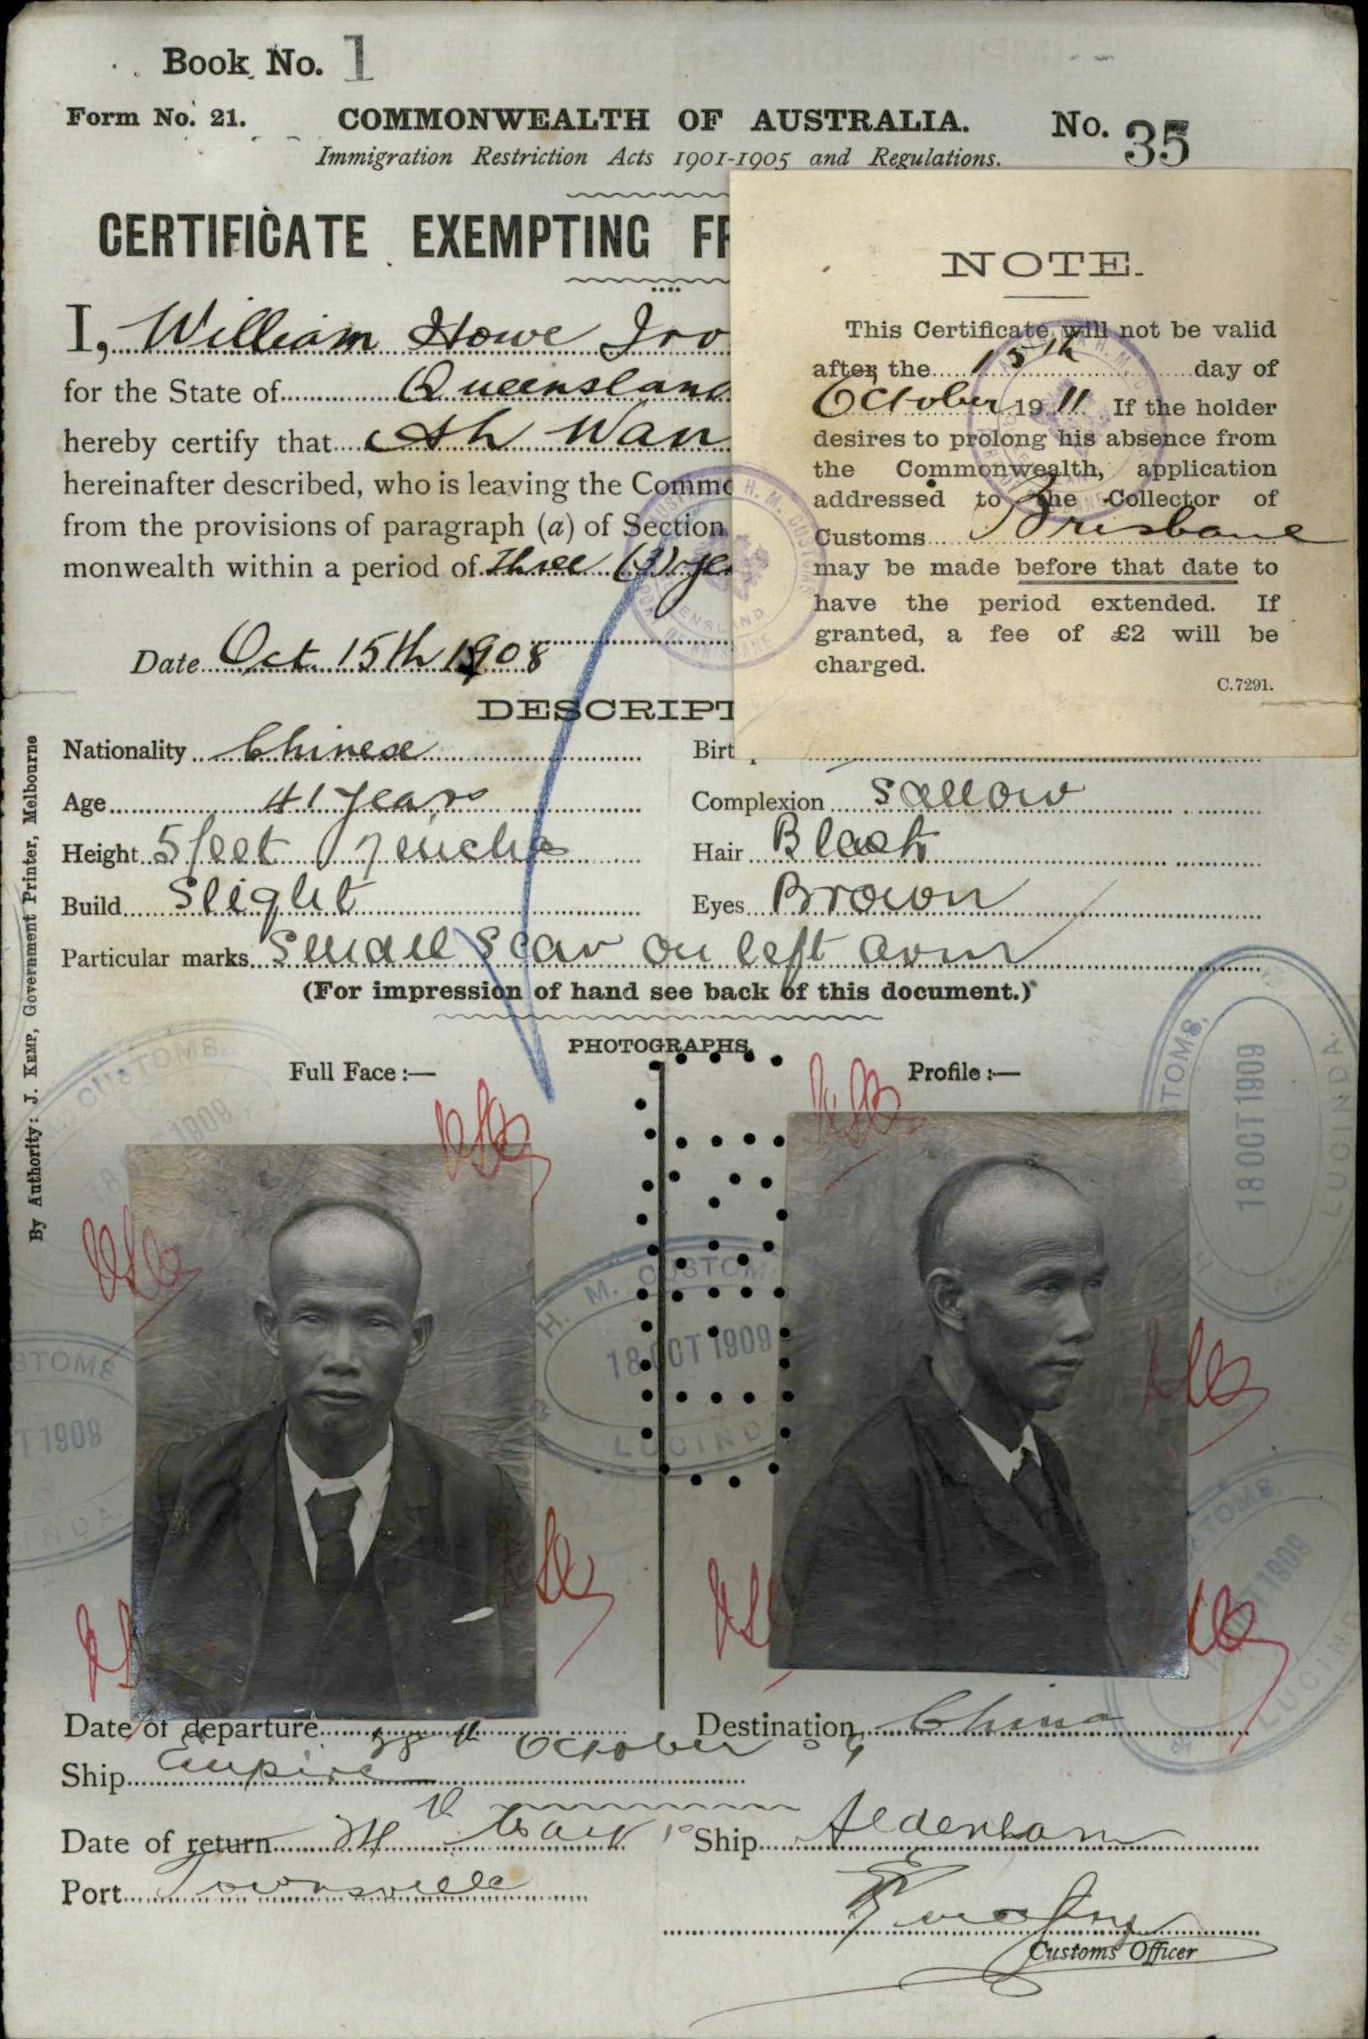 Book No. 1
Form No. 21. COMMONWEALTH OF AUSTRALIA. No. 35
Immigration Restriction Acts 1901-1905 and Regulations.
CERTIFICATE EXEMPTING
I, William Howe
for the State of Queensland
hereby certify that Ah Wan
hereinafter described, who is leaving the
from the provisions of paragraph (a) of Section
monwealth within a period of three (3)
Date Oct. 15th 1908
NOTE.
This Certificate will not be valid
after the 15th day of
October 1911 If the holder
desires to prolong his absence from
the Commonwealth, application
addressed to the Collector of
Customs Brisbane
may be made before that date to
have the period extended. If
granted, a fee of £2 will be
charged.
C.7291.
DESCRIPT
Nationality Chinese
Age 41 years Complexion Sallow
Height 5 feet 7 inches Hair Black
Build Slight Eyes Brown
Particular marks Small scar on left arm
(For impression of hand see back of this document.)
PHOTOGRAPHS.
Full Face :— Profile :—
H. M. CUSTOMS
18 OCT 1909
LUCINDA
CUSTOMS.
18 OCT 1909
LUCINDA.
Date of departure October 09 Destination China
Ship Empire
Date of return Ship Aldenham
Port Townsville
Customs Officer
By Authority: J. KEMP, Government Printer, Melbourne